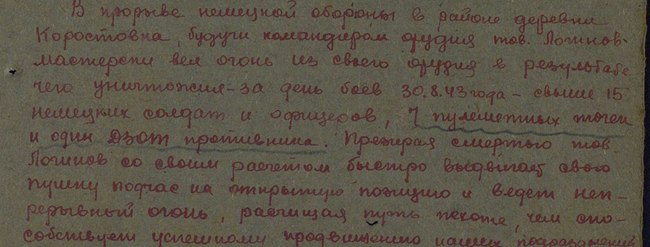 В прорыве немецкой обороны в районе деревни
Коростовка, будучи командиром орудия тов. Логинов-
мастерски вел огонь из своего орудия в результате
чего уничтожил-за день боев 30.8.43 года - свыше 15
немецких солдат и офицеров, 7 пулеметных точек
и один ДЗОТ противника. Презирая смертью тов.
Логинов со своим расчетом быстро выдвигает свою
пушку подчас на открытую позицию и ведет неп-
рерывный огонь, расчищая путь пехоте, чем спо-
собствует успешному продвижению наших подразделений